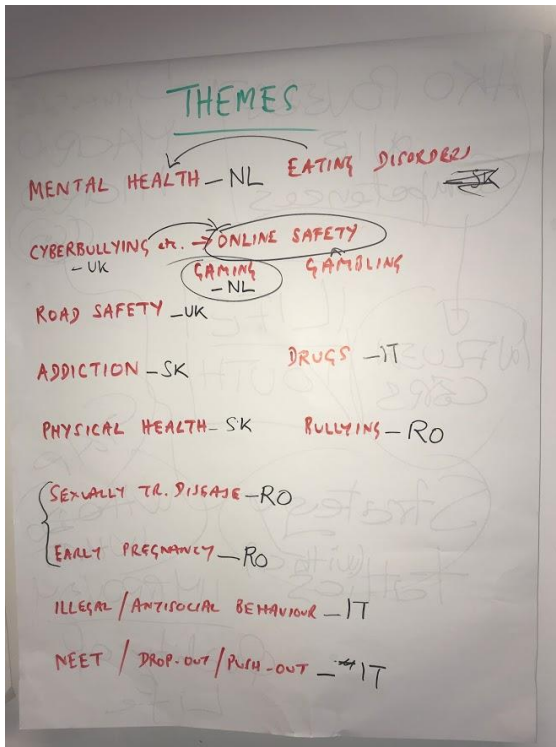 THEMES
MENTAL HEALTH - NL EATING DISORDERS
CYBERBULLYING etc. → ONLINE SAFETY
- UK GAMING GAMBLING
- NL
ROAD SAFETY - UK
ADDICTION - SK DRUGS - IT
PHYSICAL HEALTH - SK BULLYING - RO
SEXUALLY TR. DISEASE - RO
EARLY PREGNANCY - RO
ILLEGAL / ANTISOCIAL BEHAVIOUR - IT
NEET / DROP-OUT / PUSH-OUT - IT